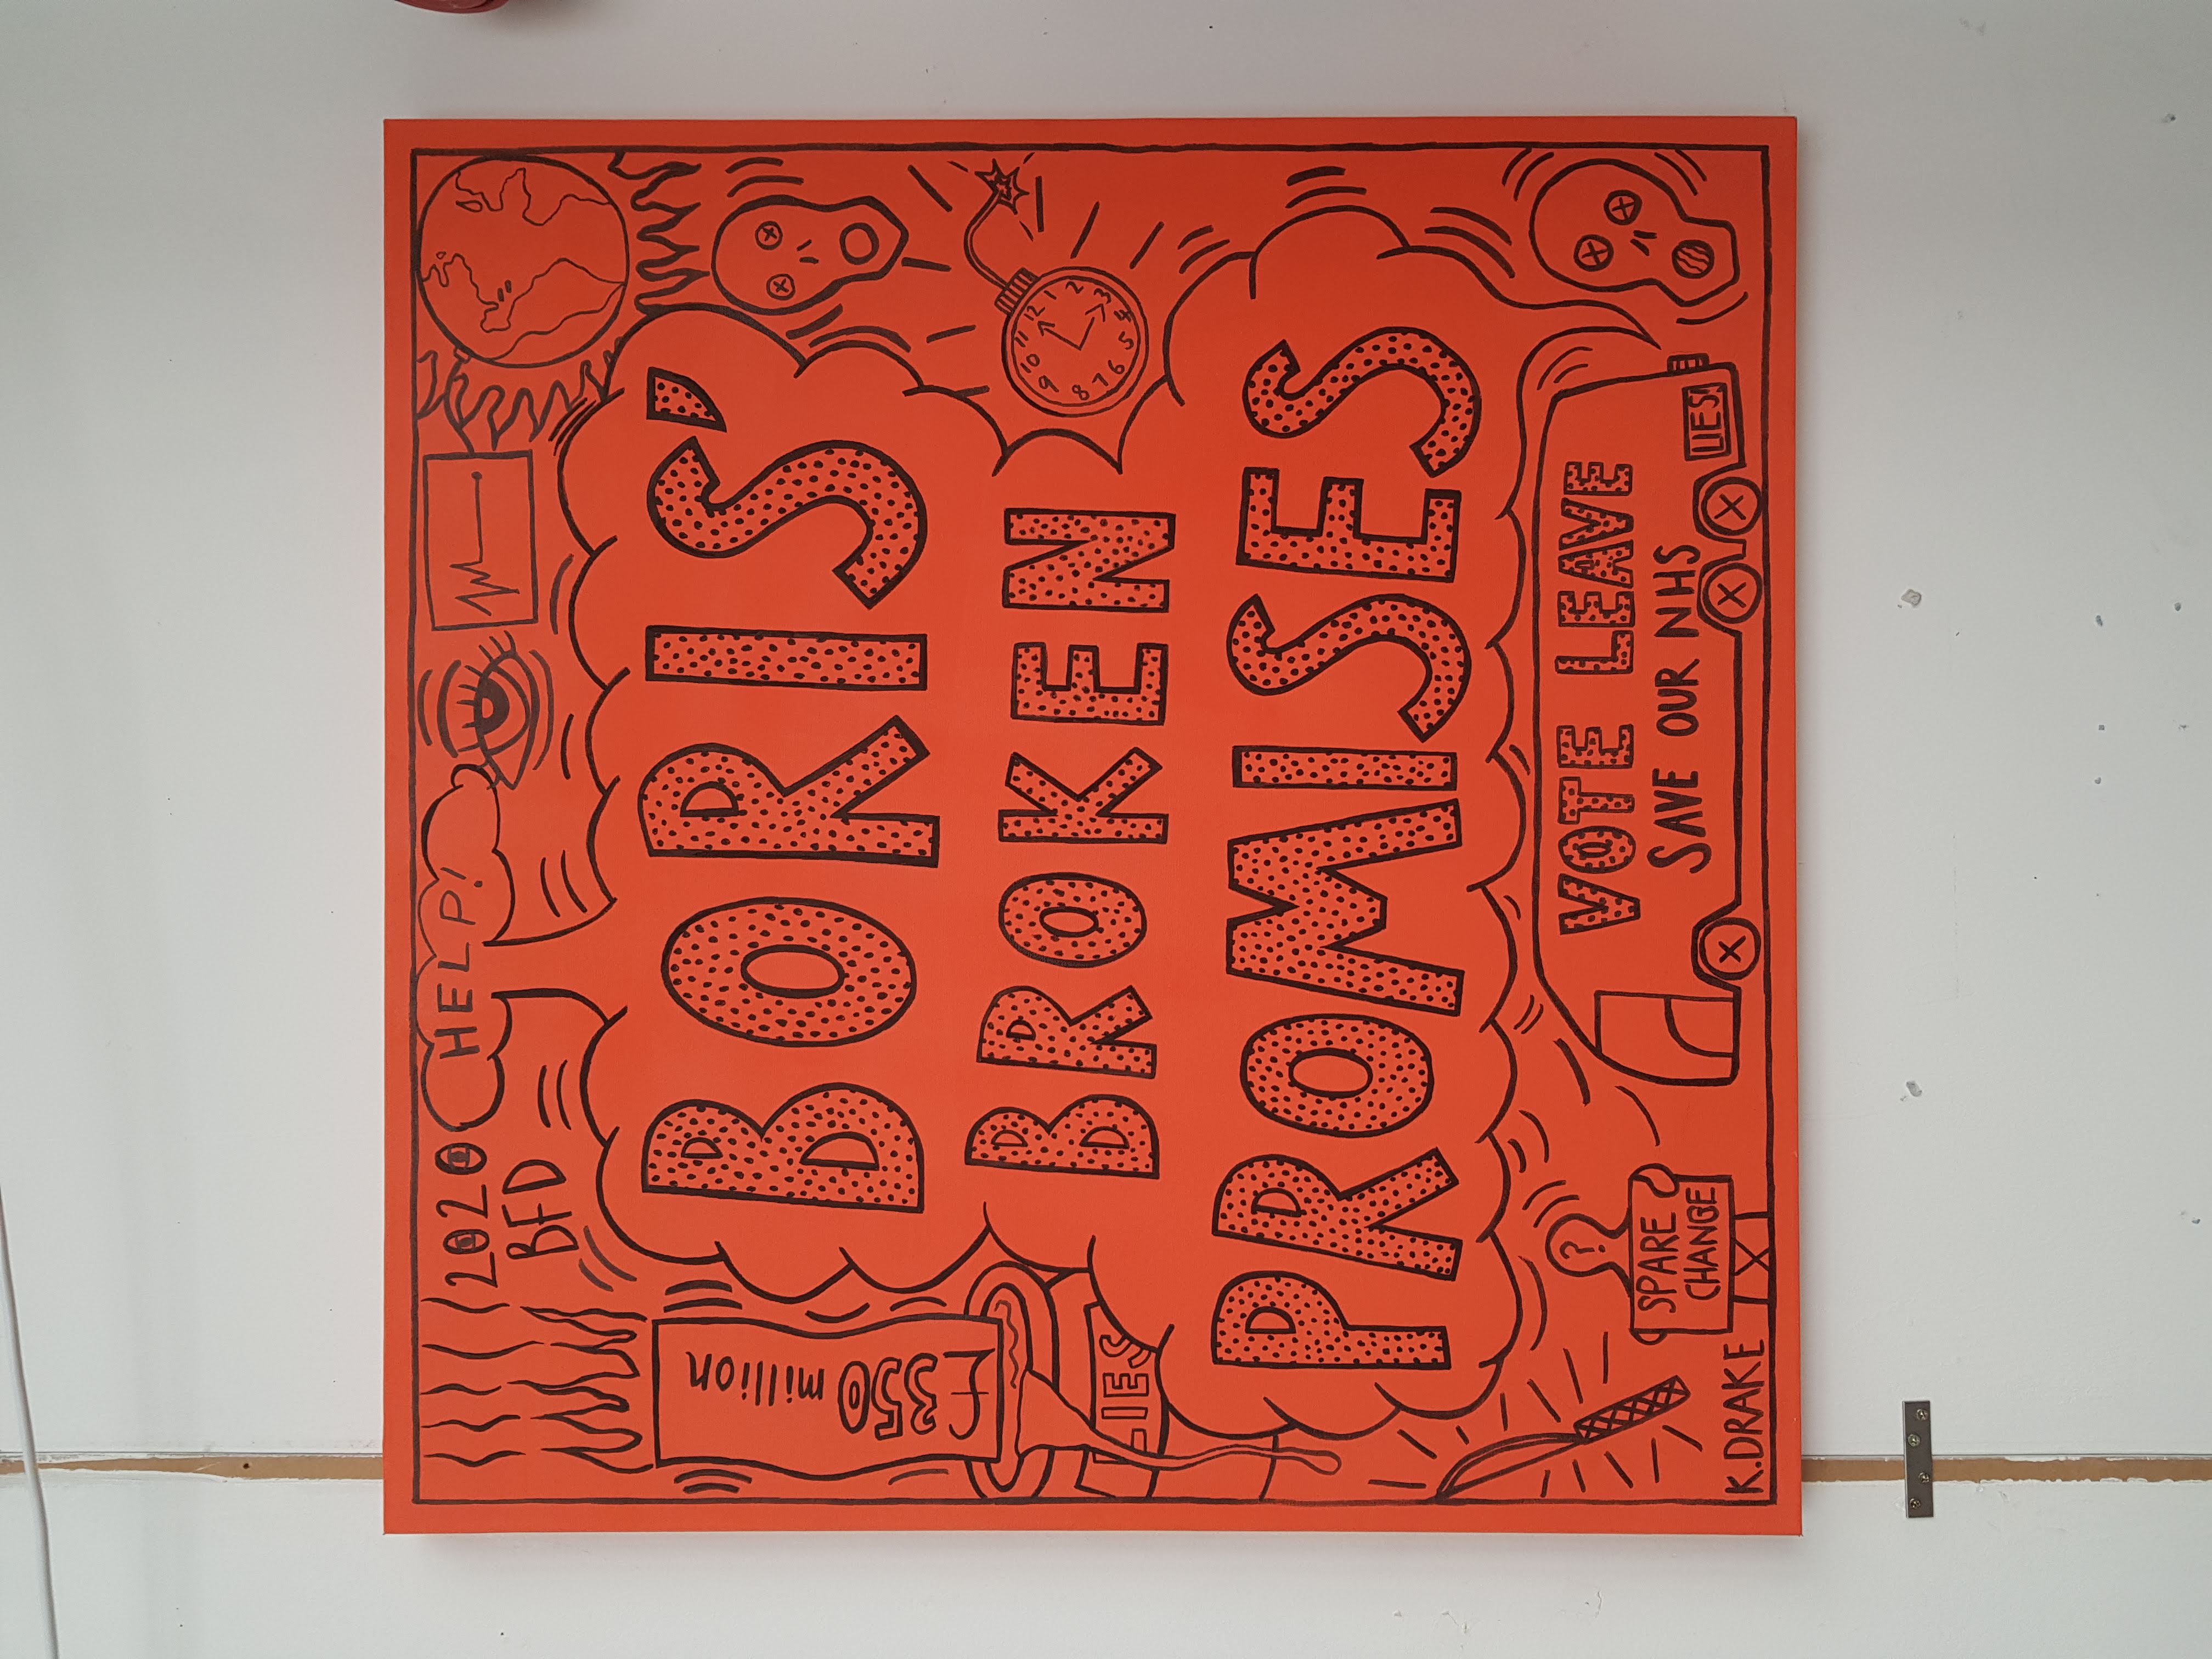 2020
BFD
HELP!
£350 million
BORIS'
BROKEN
PROMISES
LIES
11 12 1 2 3 4 5 6 7 8 9 10
SPARE
CHANGE
VOTE LEAVE
SAVE OUR NHS
LIES!
?
K.DRAKE